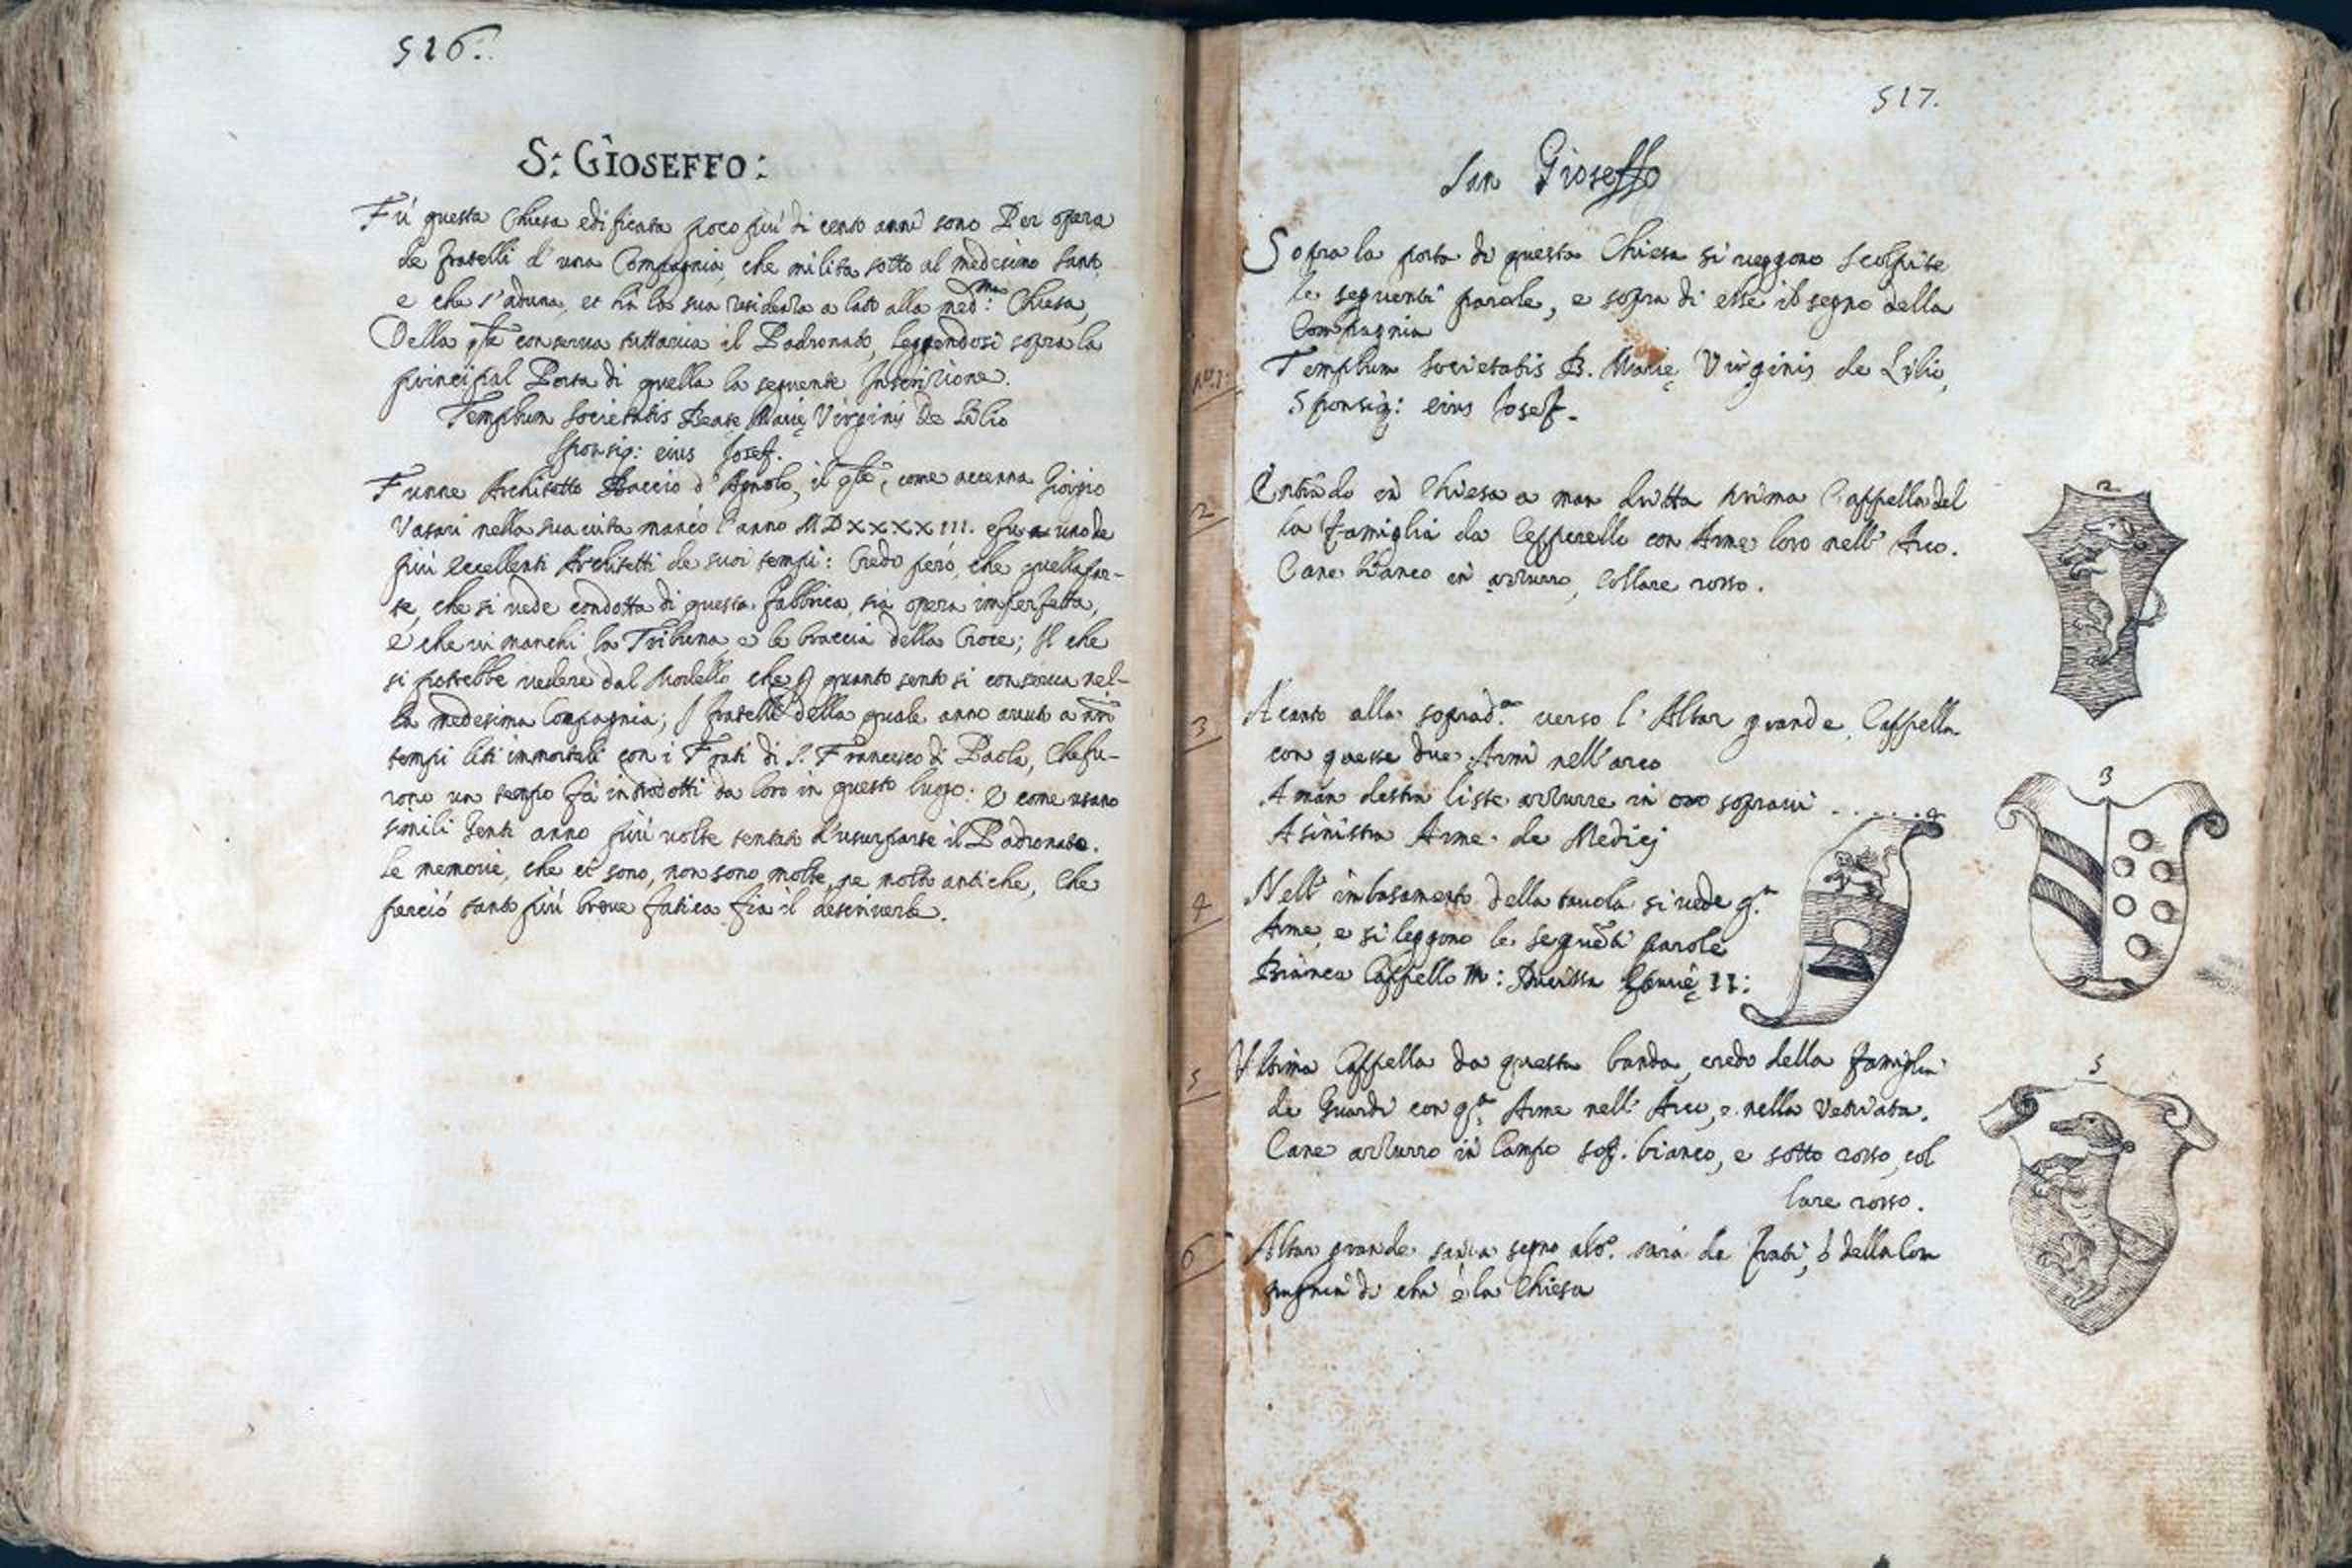 516.
S: GIOSEFFO:
Fù questa Chiesa edificata poco più di cento anni sono Per opera
de fratelli d'una Compagnia, che milita sotto al medesimo Santo
e che s'aduna, et hà la sua residenza a lato alla med:ma Chiesa,
Della qle conserva tuttavia il Padronato, leggendosi sopra la
principal Porta di quella la seguente Inscrizione.
Templum Societatis Beatę Marię Virginis De Lilio
Sponsiq: eius Josef.
Funne Architetto Baccio d'Agnolo, il qle, come accenna Giorgio
Vasari nella sua vita mancò l'anno MDXXXXIII. e fu uno de
più eccellenti Architetti de suoi tempi: Credo però, che quella par-
te, che si vede condotta di questa fabbrica, sia opera imperfetta,
e che vi manchi la Tribuna, e le braccia della Croce; Il che
si potrebbe vedere dal Modello che p quanto sento si conserva nel-
la medesima Compagnia; I fratelli della quale anno avuto a nri
tempi liti immortali con i Frati di S. Francesco di Paola, che fu-
rono un tempo fà introdotti da loro in questo luogo: e come usano
simili Genti anno più volte tentato d'usurparse il Padronato.
Le memorie, che ci sono, non sono molte, ne molto antiche, che
perciò tanto più breve fatica fia il descriverle.
517.
San Gioseffo
Sopra la porta di questa Chiesa si veggono scolpite
le seguenti parole, e sopra di esse il segno della
Compagnia
No. 1: Templum Societatis B. Marię Virginis de Lilio,
Sponsiq: eius Iosef.
2 Entrãdo in Chiesa a man dritta prima Cappella del
la famiglia da Cepperello con Arme loro nell'Arco.
Cane bianco in azzurro, collare rosso.
2
3 Acanto alla soprad.a verso l'Altar grande, Cappella
con queste due Armi nell'arco
A man destra liste azzurre in oro sopravi ......
A sinistra Arme de Medicj
3
4 Nell'imbasamento della tavola si vede q.ta
Arme, e si leggono le seguẽti parole
Bianca Cappello M: Ducissa Etrurię II:
4
5 Ultima Cappella da questa banda, credo della famiglia
de Guardi con q.ta Arme nell'Arco, e nella Vetriata.
Cane azzurro in Campo sop. bianco, e sotto rosso, col
lare rosso.
5
6 Altar grande sanza segno alc.o sarà de frati, ò della Com
pagnia di chi è la Chiesa